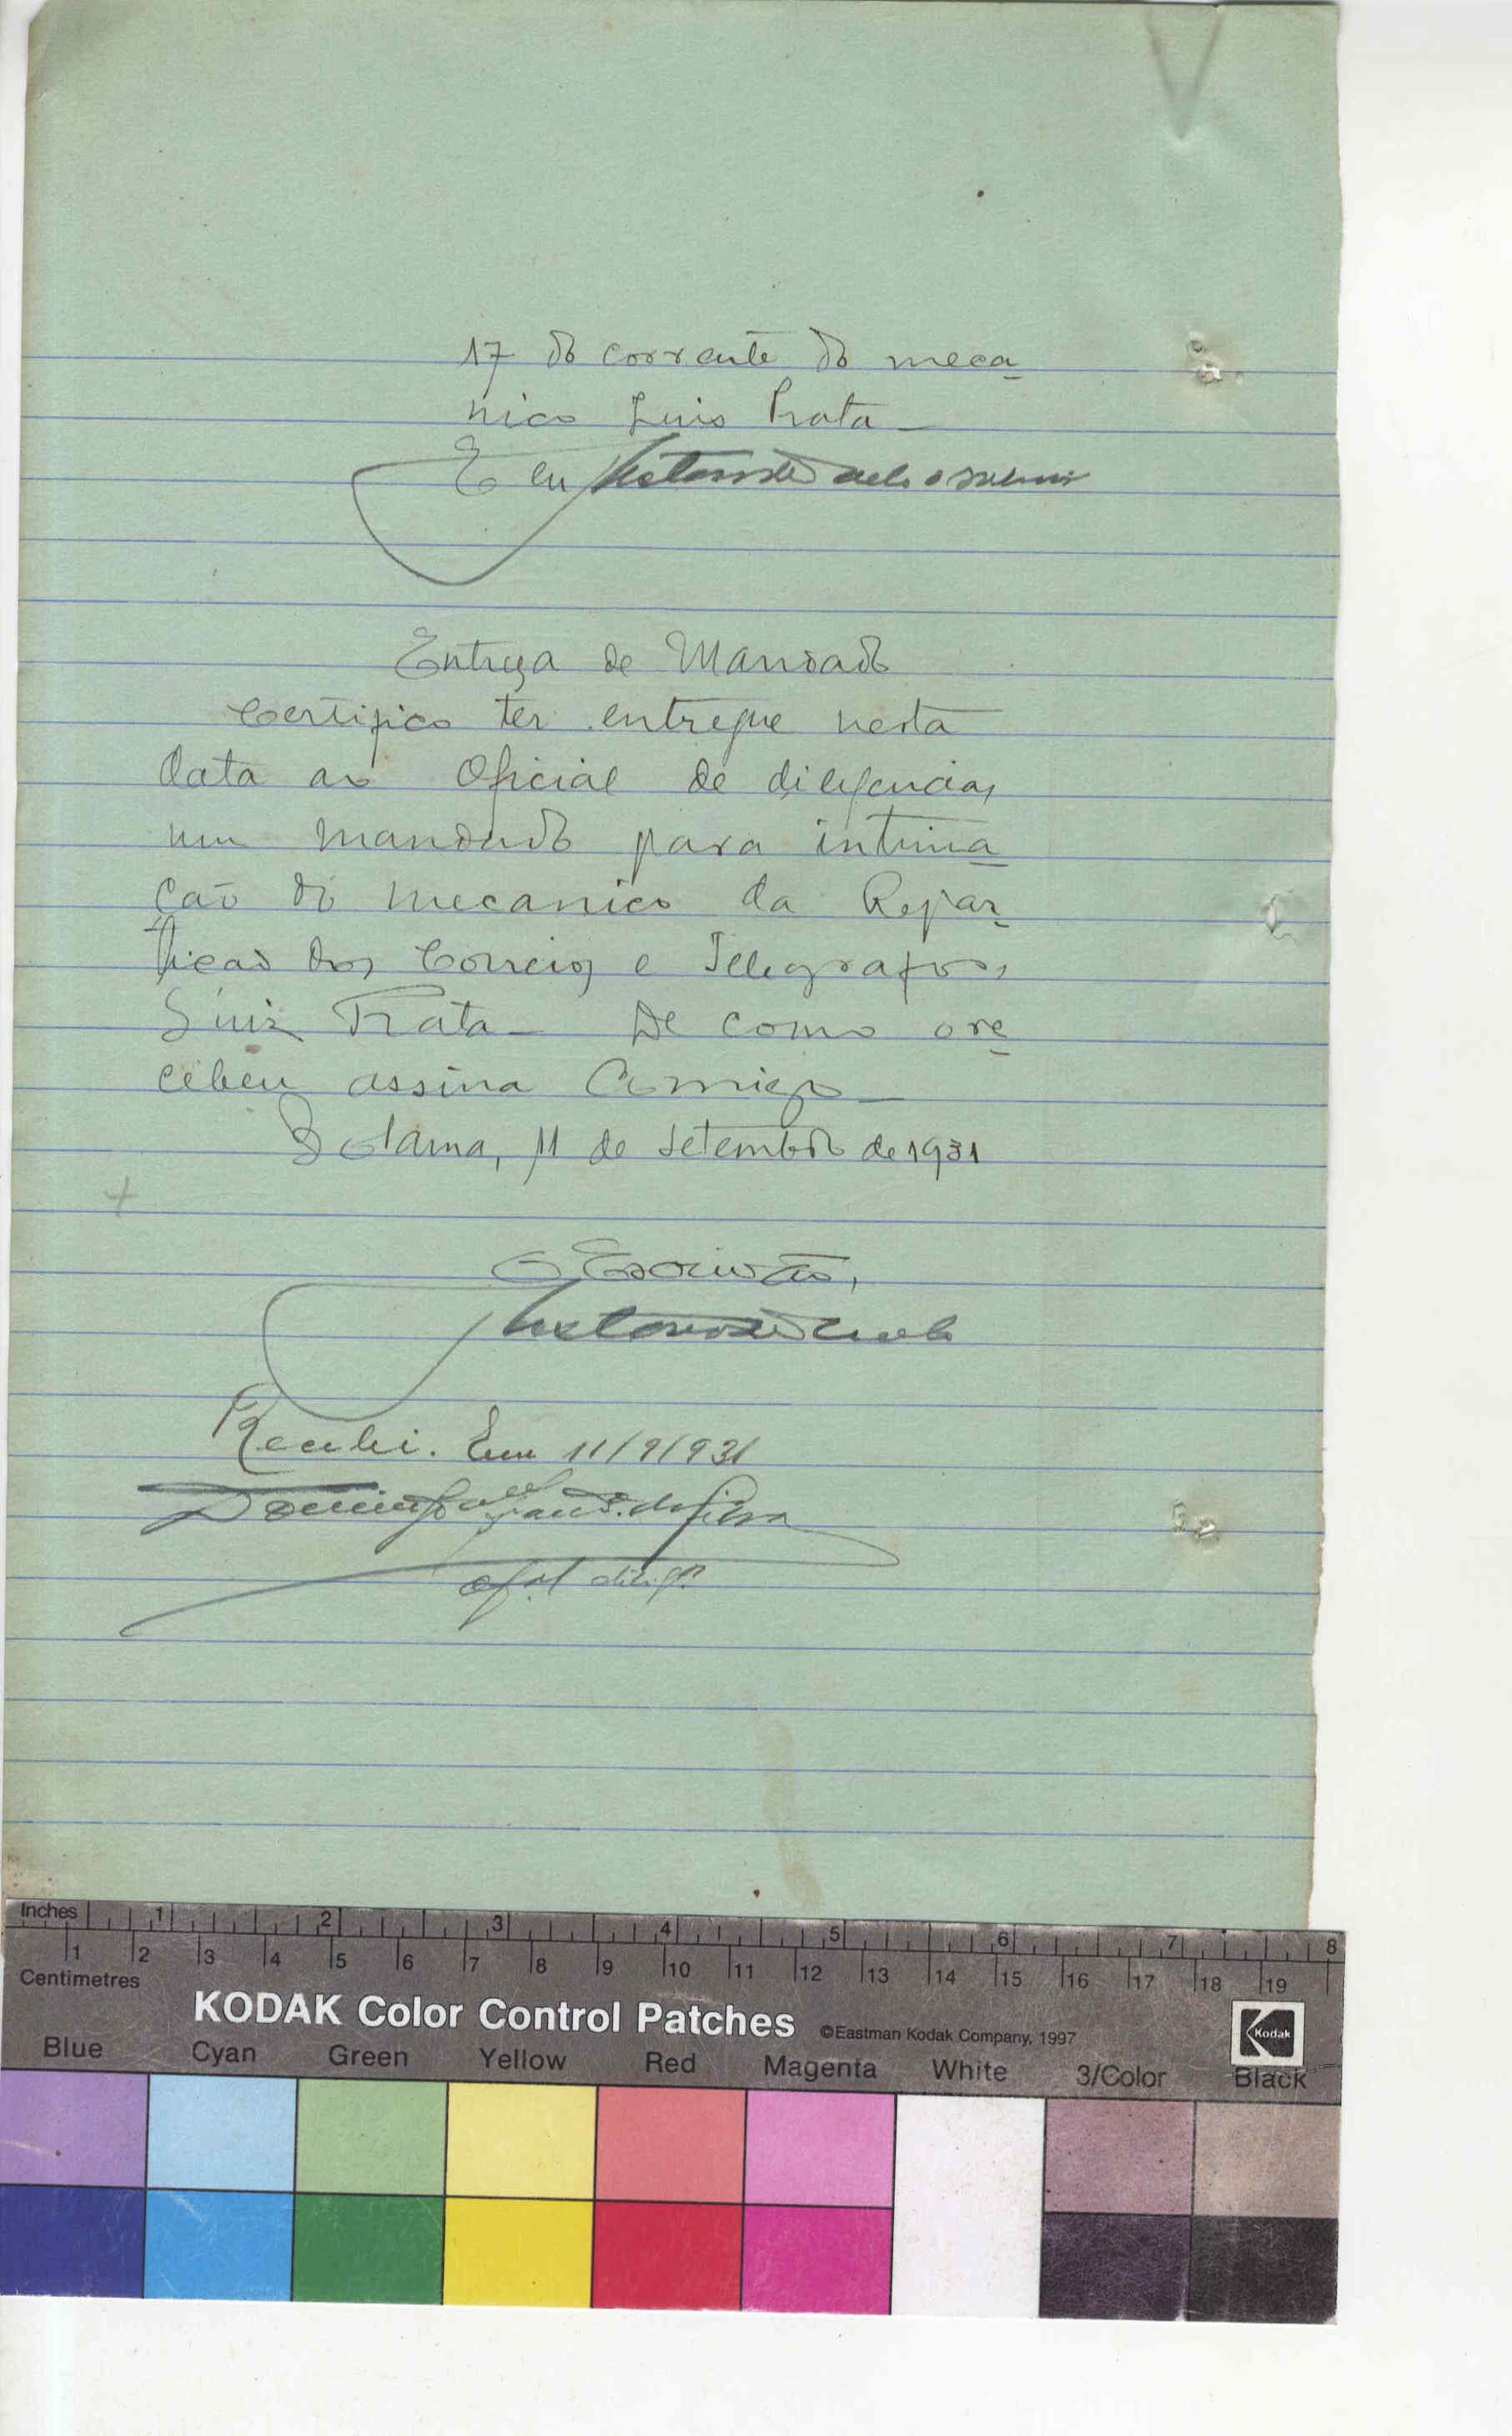 17 do corrente do meca-
nico Luis Prata -
E eu
Entrega de Mandado
Certifico ter entregue nesta
data ao Oficial de diligencias
um mandado para intima-
ção do mecanico da Repar-
tição dos Correios e Telegrafos,
Luiz Prata - De como o re-
cebeu assina comigo -
Bolama, 11 de Setembro de 1931
O Escrivão,
Recebi. Em 11/9/931
da Silva
Inches 1 2 3 4 5 6 7 8
1 2 3 4 5 6 7 8 9 10 11 12 13 14 15 16 17 18 19
Centimetres
KODAK Color Control Patches ©Eastman Kodak Company, 1997 Kodak
Blue Cyan Green Yellow Red Magenta White 3/Color Black